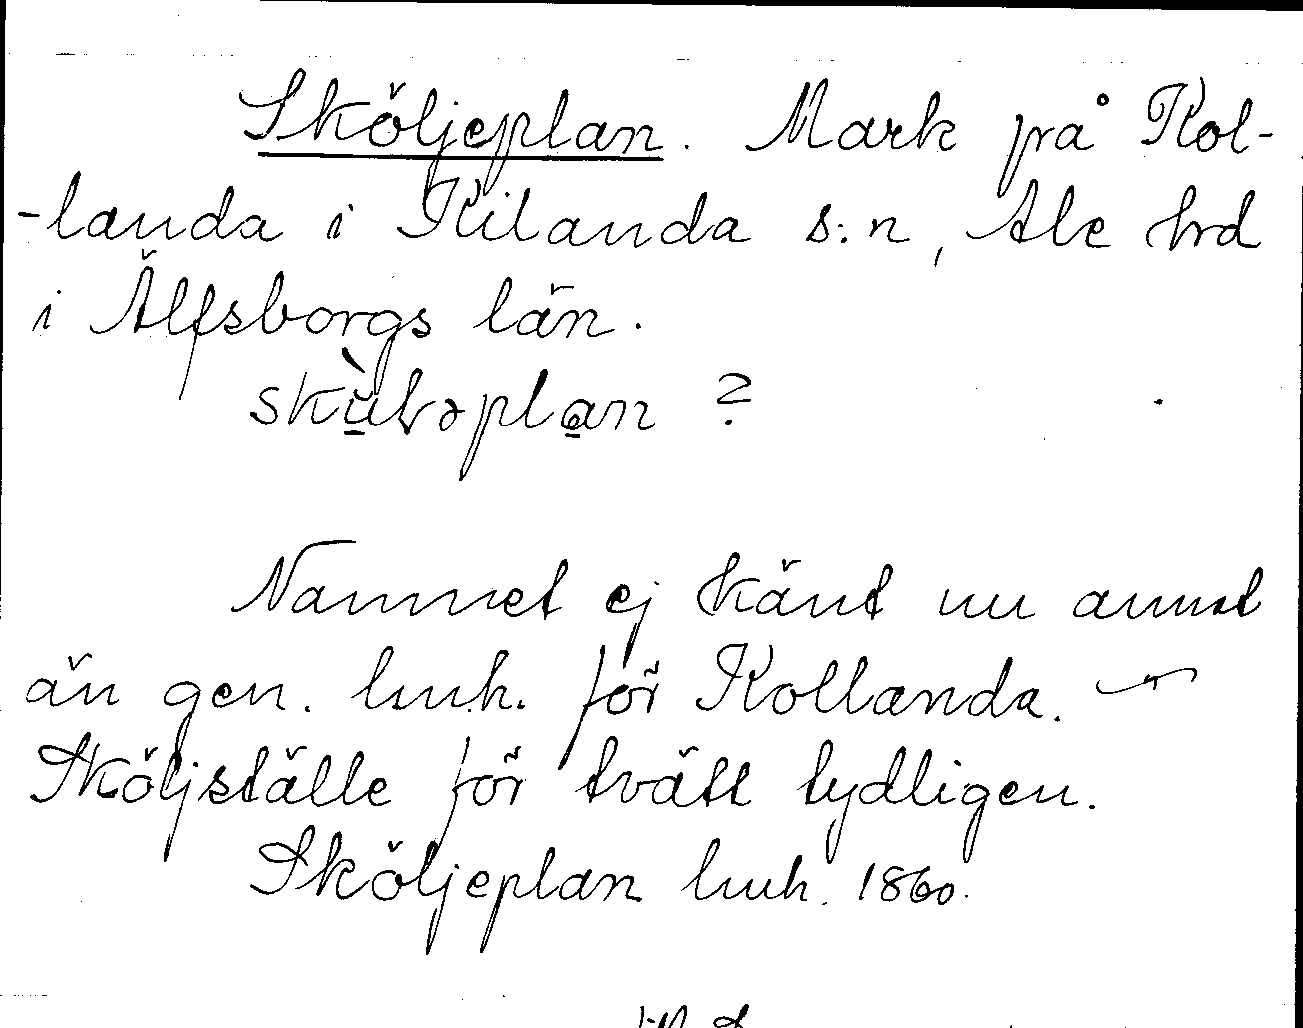 Sköljeplan. Mark på Kol-
-landa i Kilanda s:n, Ale hrd
i Älfsborgs län.
Namnet ej känt nu annat
än gen. lmh. för Kollanda. —
Sköljställe för tvätt tydligen.
Sköljeplan lmh. 1860.